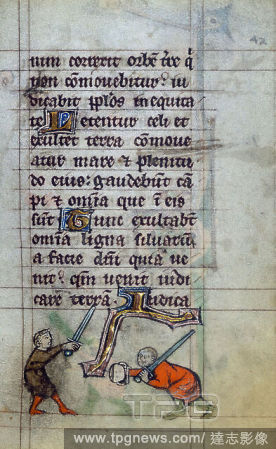 42
nim correxit orbē tr̄e q̇
non cōmouebitur: iu
dicabit pp̄los in equita
te Letentur celi et
exultet terra cōmoue
atur mare ⁊ plenitu
do eius: gaudebūt cā
pi ⁊ om̄ia que ī eis
sūt Tunc exultabūt
om̄ia ligna siluarū
a facie dn̄i quia ue
nit: qm̄ uenit iudi
care terrā Iudica
TPG
www.tpgnews.com/ 達志影像